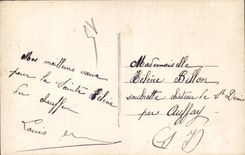 Mes meilleurs vœux
pour la Sainte Hélène
du chauffeur
Louis
Mademoiselle
Hélène Billon
château de St Denis
par Auffay
(S I)